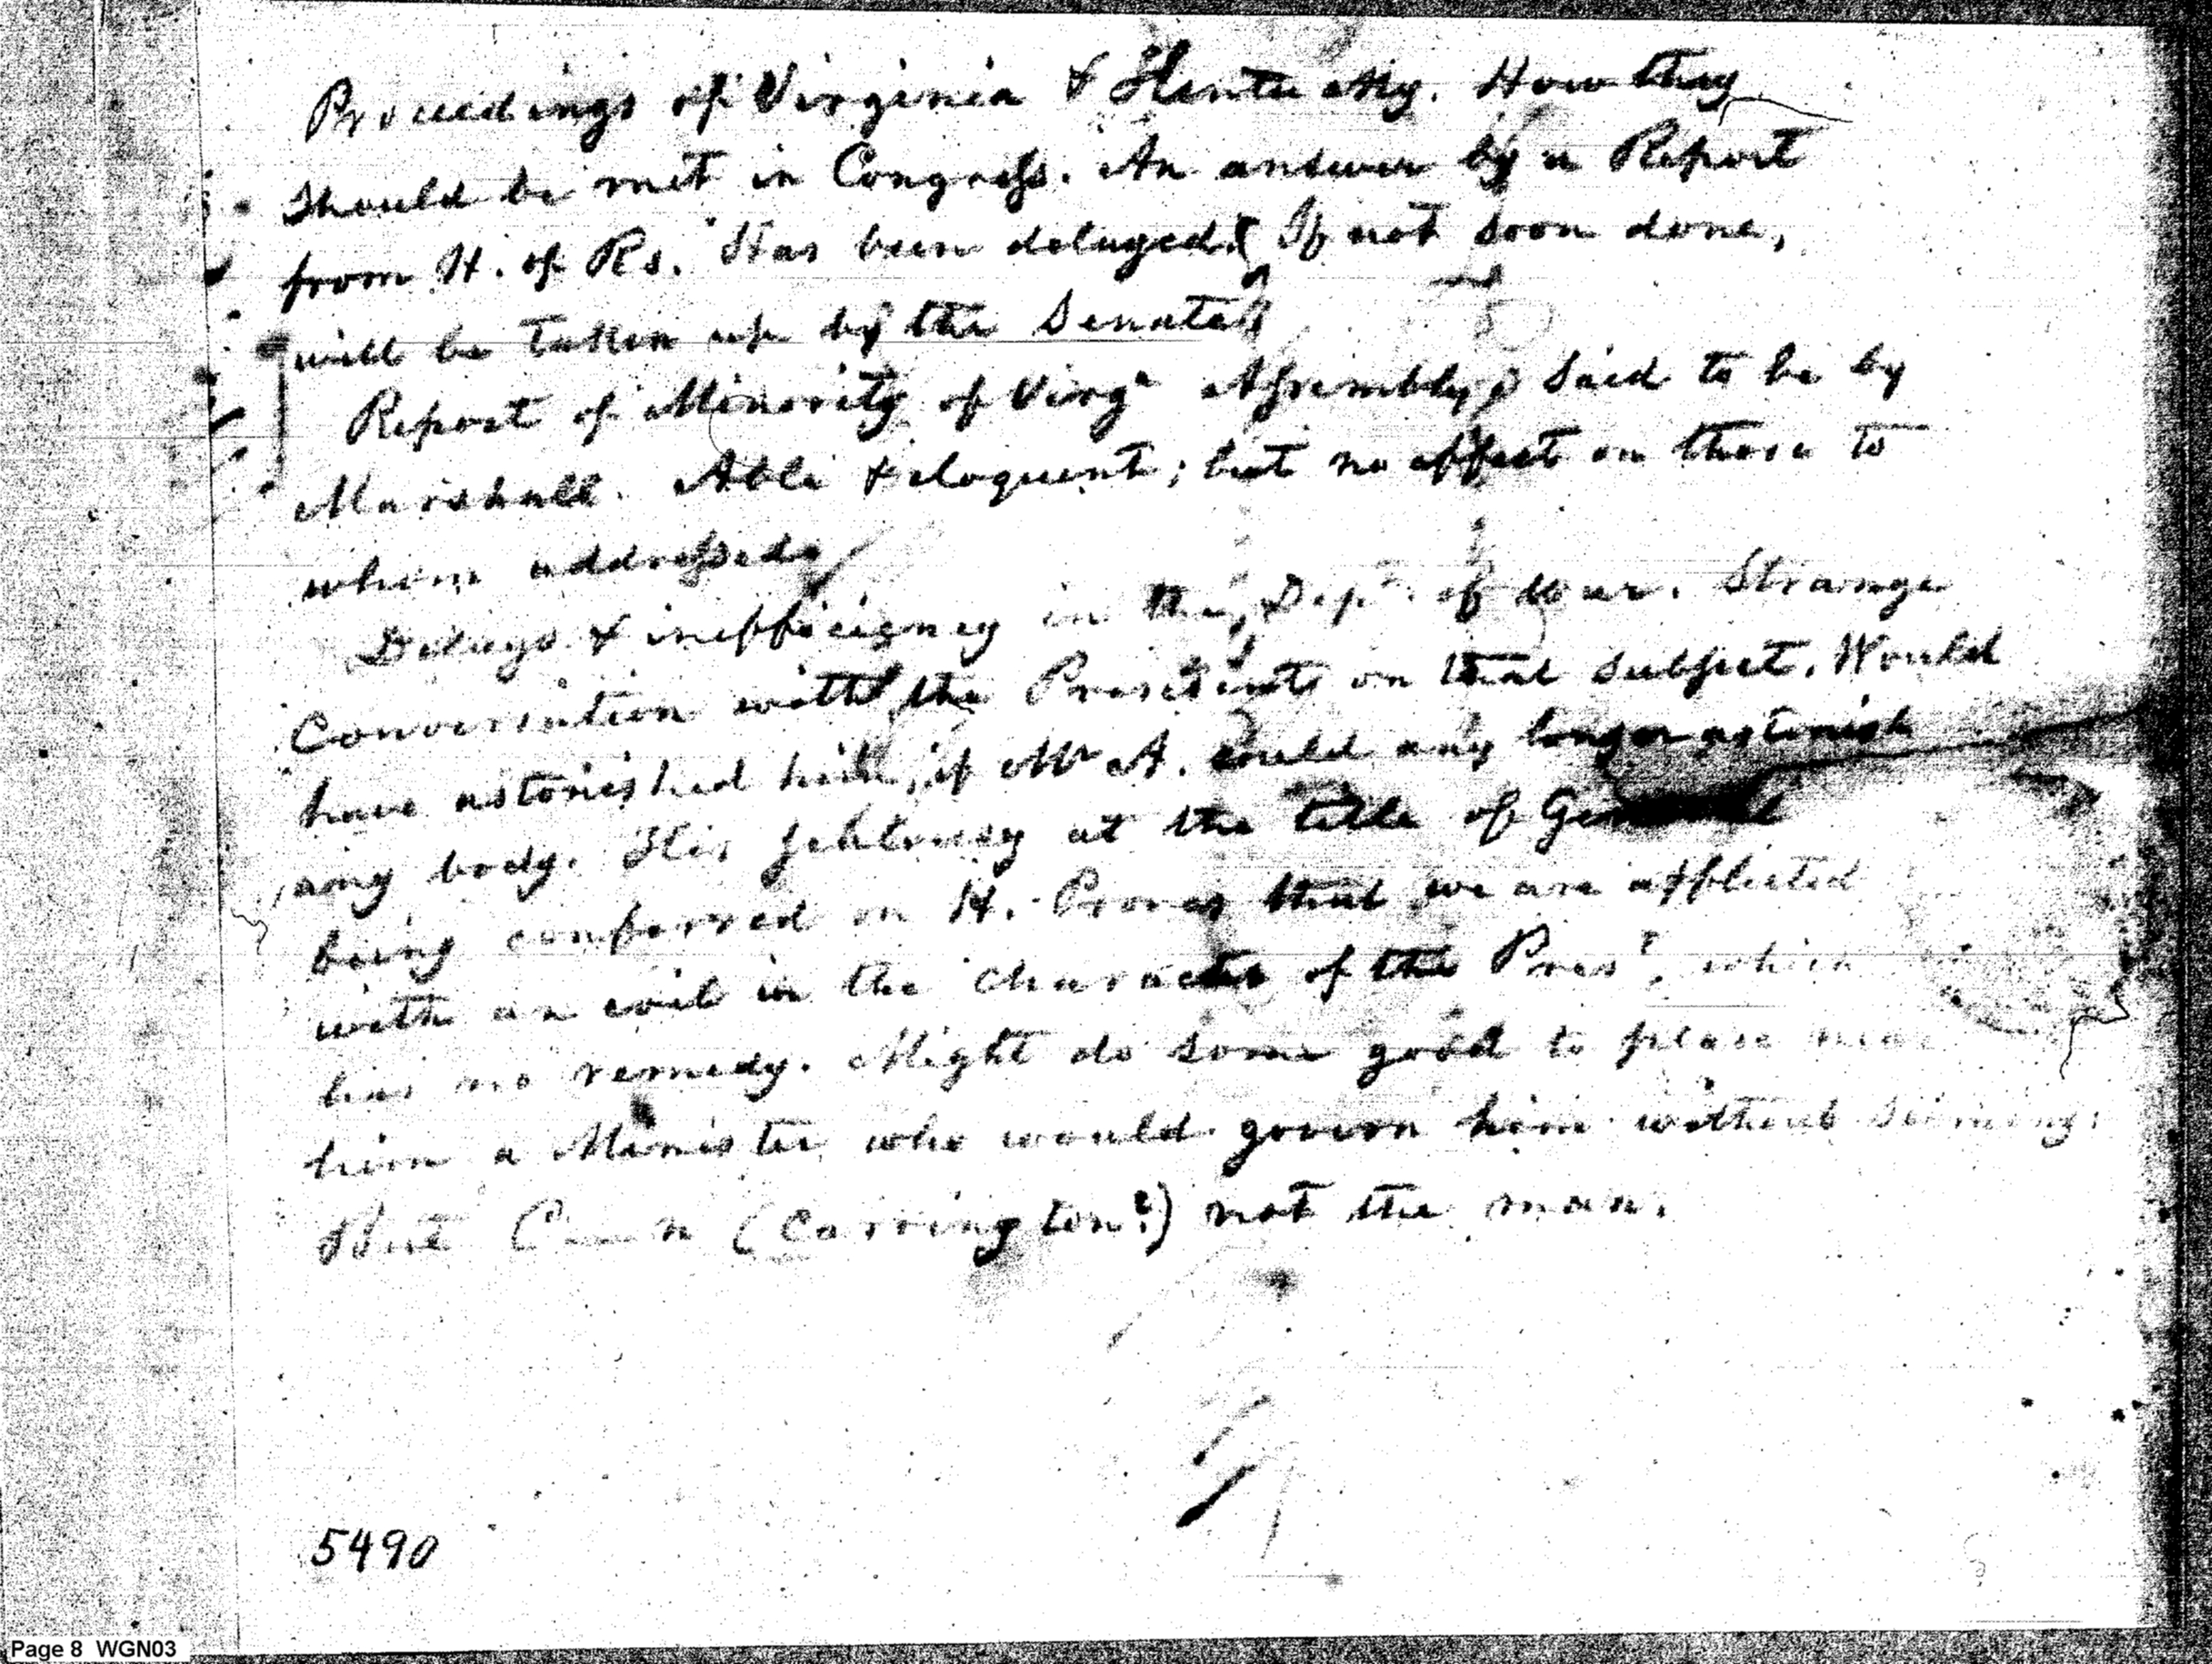 Proceedings of Virginia & Kentucky. How they
should be met in Congress. An answer by a Report
from H. of Rs. Has been delayed. If not soon done,
will be taken up by the Senate.
Report of Minority of Virga Assembly, said to be by
Marshall. Able & eloquent; but no effect on those to
whom addressed.
Delays & inefficiency in the Dept. of War. Strange
Conversation with the President on that subject. Would
have astonished him, if Mr A. could any longer astonish
any body. His jealousy at the title of General
being conferred on H. Proves that we are afflicted
with an evil in the character of the Prest, which
has no remedy. Might do some good to place near
him a Minister who would govern him without seeming.
But C——n (Carrington?) not the man.
5490
Page 8 WGN03